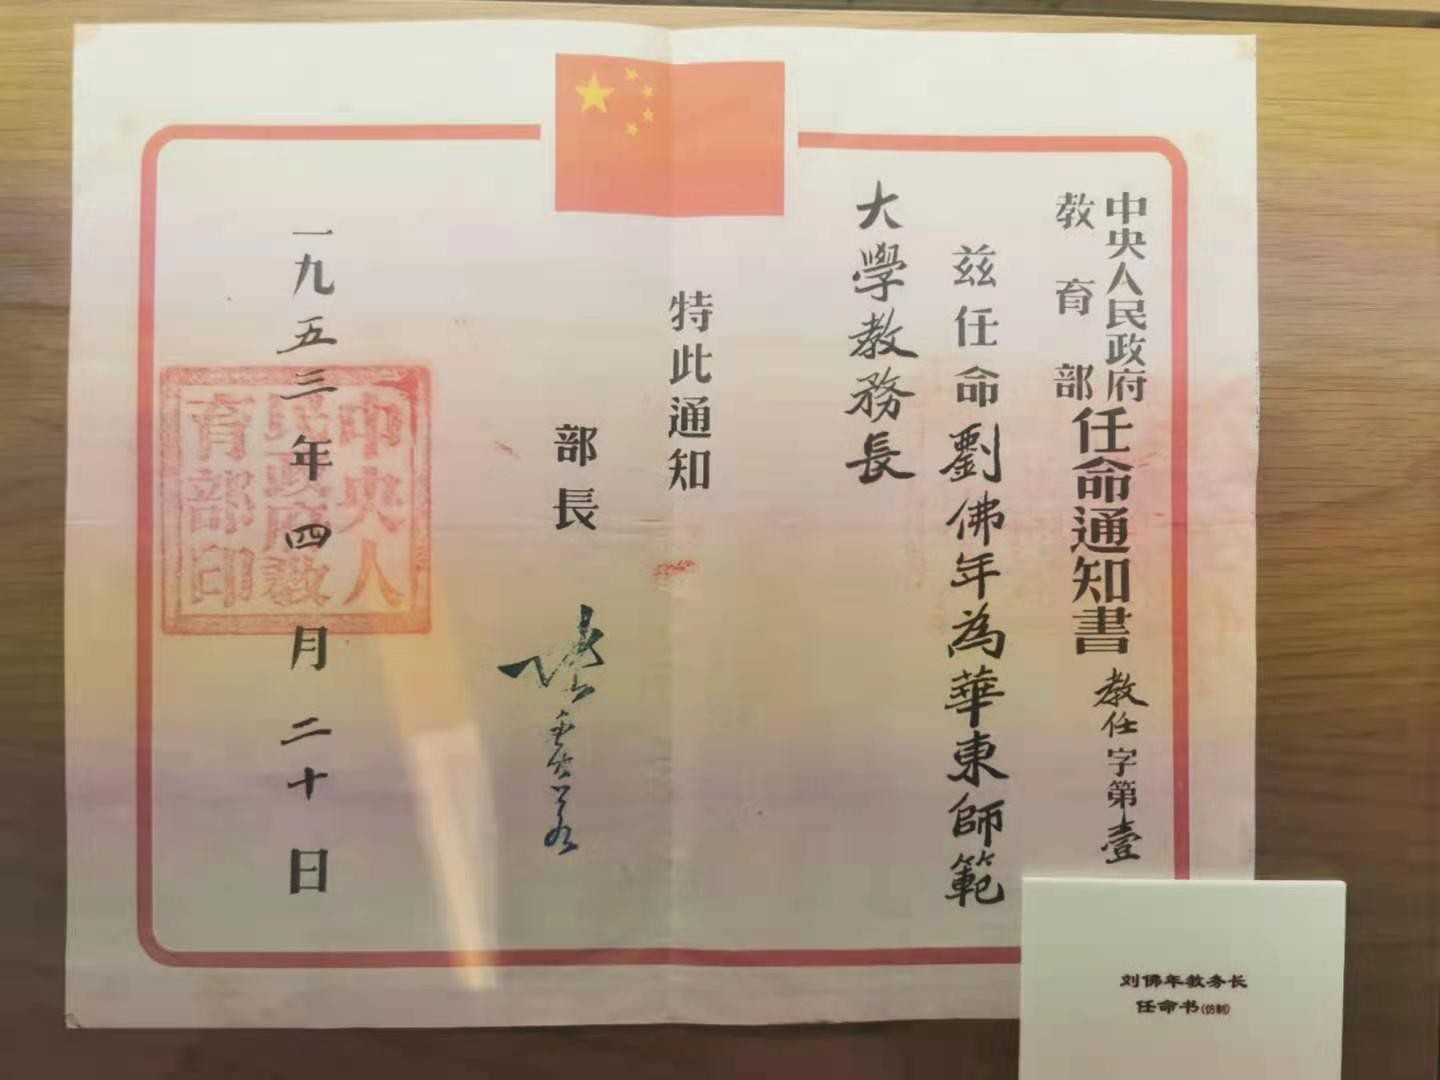 中央人民政府
教育部
任命通知書
教任字第壹
茲任命劉佛年為華東師範
大學教務長
特此通知
部長
一九五三年四月二十日
中央人
民政府教
育部印
刘佛年教务长
任命书(仿制)